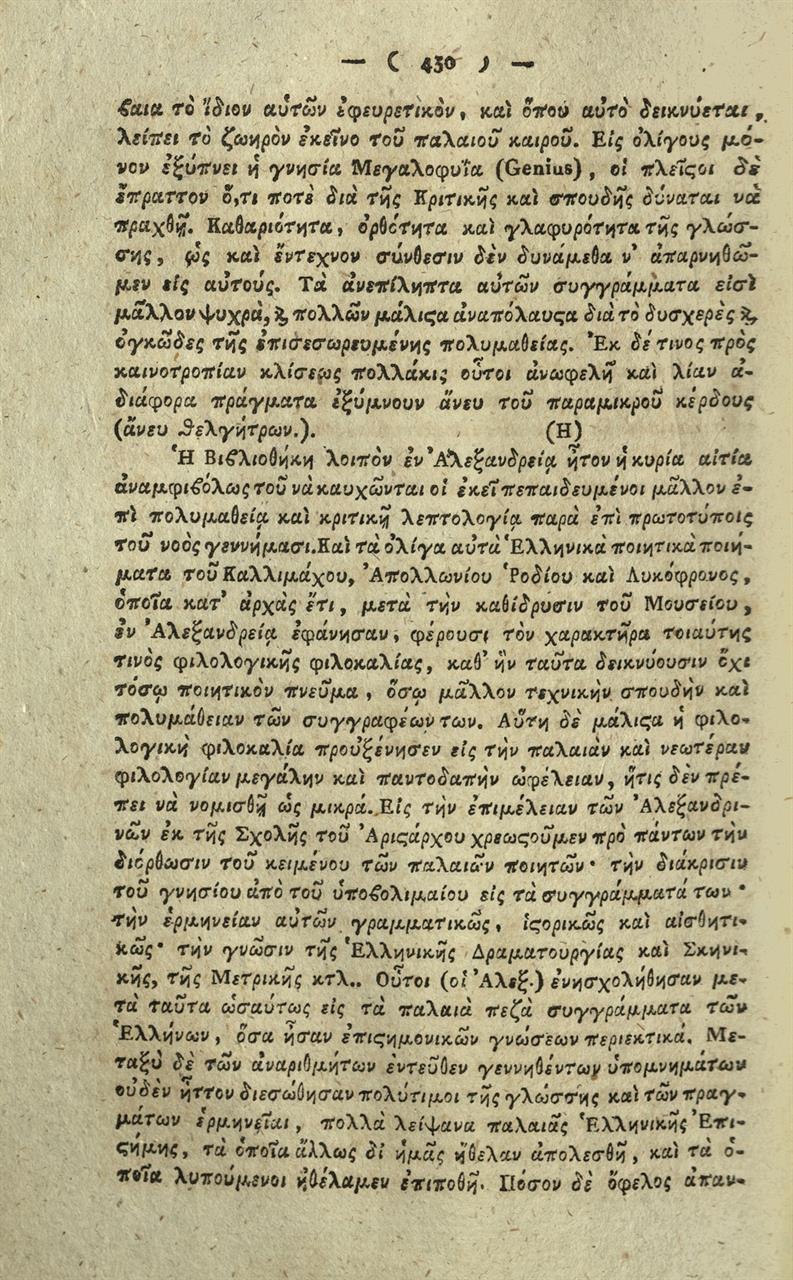 — ( 430 ) —
ϐαια τὸ ἴδιον αὐτῶν ἐφευρετικὸν, καὶ ὅπου αὐτὸ δεικνύεται,
λείπει τὸ ζωηρὸν ἐκεῖνο τοῦ παλαιοῦ καιροῦ. Εἰς ὀλίγους μό-
νον ἐξύπνει ἡ γνησία Μεγαλοφυΐα (Genius), οἱ πλεῖϛοι δὲ
ἔπραττον ὅ,τι ποτὲ διὰ τῆς Κριτικῆς καὶ σπουδῆς δύναται νὰ
πραχθῇ. Καθαριότητα, ὀρθότητα καὶ γλαφυρότητα τῆς γλώσ-
σης, ὡς καὶ ἔντεχνον σύνθεσιν δὲν δυνάμεθα ν' ἀπαρνηθῶ-
μεν εἰς αὐτούς. Τὰ ἀνεπίληπτα αὐτῶν συγγράμματα εἰσὶ
μᾶλλον ψυχρὰ, ϗ πολλῶν μάλιϛα ἀναπόλαυϛα διὰ τὸ δυσχερὲς ϗ
ὀγκῶδες τῆς ἐπισεσωρευμένης πολυμαθείας. Ἐκ δέ τινος πρὸς
καινοτροπίαν κλίσεως πολλάκις οὗτοι ἀνωφελῆ καὶ λίαν ἀ-
διάφορα πράγματα ἐξύμνουν ἄνευ τοῦ παραμικροῦ κέρδους
(ἄνευ θελγήτρων.). (Η)
Ἡ Βιϐλιοθήκη λοιπὸν ἐν Ἀλεξανδρείᾳ ἦτον ἡ κυρία αἰτία
ἀναμφιϐόλως τοῦ νὰ καυχῶνται οἱ ἐκεῖ πεπαιδευμένοι μᾶλλον ἐ-
πὶ πολυμαθείᾳ καὶ κριτικῇ λεπτολογίᾳ παρὰ ἐπὶ πρωτοτύποις
τοῦ νοὸς γεννήμασι. Καὶ τὰ ὀλίγα αὐτὰ Ἑλληνικὰ ποιητικὰ ποιή-
ματα τοῦ Καλλιμάχου, Ἀπολλωνίου Ῥοδίου καὶ Λυκόφρονος,
ὁποῖα κατ' ἀρχὰς ἔτι, μετὰ τὴν καθίδρυσιν τοῦ Μουσείου,
ἐν Ἀλεξανδρείᾳ ἐφάνησαν, φέρουσι τὸν χαρακτῆρα τοιαύτης
τινὸς φιλολογικῆς φιλοκαλίας, καθ' ἣν ταῦτα δεικνύουσιν ὄχι
τόσῳ ποιητικὸν πνεῦμα, ὅσῳ μᾶλλον τεχνικὴν σπουδὴν καὶ
πολυμάθειαν τῶν συγγραφέων των. Αὕτη δὲ μάλιϛα ἡ φιλο-
λογικὴ φιλοκαλία προὐξένησεν εἰς τὴν παλαιὰν καὶ νεωτέραν
φιλολογίαν μεγάλην καὶ παντοδαπὴν ὠφέλειαν, ἥτις δὲν πρέ-
πει νὰ νομισθῇ ὡς μικρά. Εἰς τὴν ἐπιμέλειαν τῶν Ἀλεξανδρι-
νῶν ἐκ τῆς Σχολῆς τοῦ Ἀριϛάρχου χρεωϛοῦμεν πρὸ πάντων τὴν
διόρθωσιν τοῦ κειμένου τῶν παλαιῶν ποιητῶν· τὴν διάκρισιν
τοῦ γνησίου ἀπὸ τοῦ ὑποϐολιμαίου εἰς τὰ συγγράμματά των·
τὴν ἑρμηνείαν αὐτῶν γραμματικῶς, ἱϛορικῶς καὶ αἰσθητι-
κῶς· τὴν γνῶσιν τῆς Ἑλληνικῆς Δραματουργίας καὶ Σκηνι-
κῆς, τῆς Μετρικῆς κτλ.. Οὗτοι (οἱ Ἀλεξ.) ἐνησχολήθησαν με-
τὰ ταῦτα ὡσαύτως εἰς τὰ παλαιὰ πεζὰ συγγράμματα τῶν
Ἑλλήνων, ὅσα ἦσαν ἐπιϛημονικῶν γνώσεων περιεκτικά. Με-
ταξὺ δὲ τῶν ἀναριθμήτων ἐντεῦθεν γεννηθέντων ὑπομνημάτων
οὐδὲν ἧττον διεσώθησαν πολύτιμοι τῆς γλώσσης καὶ τῶν πραγ-
μάτων ἑρμηνεῖαι, πολλὰ λείψανα παλαιᾶς Ἑλληνικῆς Ἐπι-
ϛήμης, τὰ ὁποῖα ἄλλως δι' ἡμᾶς ἤθελαν ἀπολεσθῆ, καὶ τὰ ὁ-
ποῖα λυπούμενοι ἠθέλαμεν ἐπιποθῆ. Πόσον δὲ ὄφελος ἀπαν-